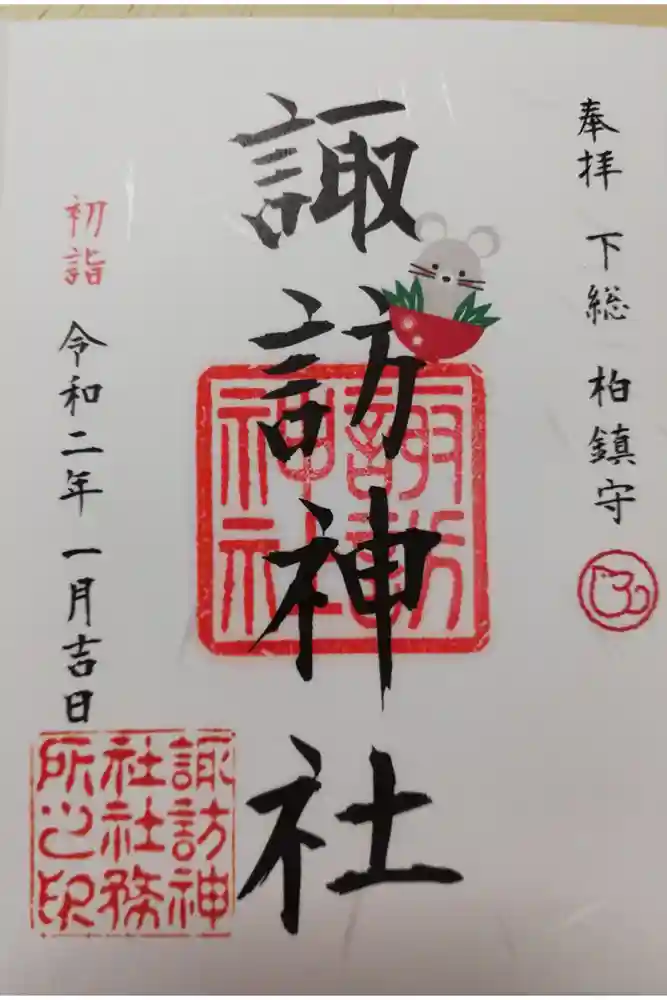 奉拝 下総 柏鎮守
諏訪神社
諏訪
神社
初詣 令和二年 一月吉日
諏訪神
社社務
所之印